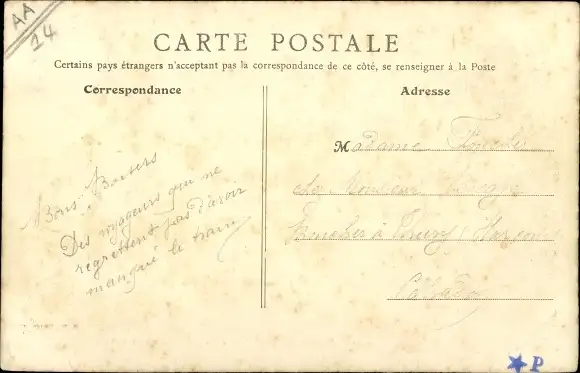 AA
14
CARTE POSTALE
Certains pays étrangers n'acceptant pas la correspondance de ce côté, se renseigner à la Poste
Correspondance
Adresse
Bons Baisers
Des voyageurs qui ne
regrettent pas d'avoir
manqué le train
Madame
Monsieur
à
Calvados
P